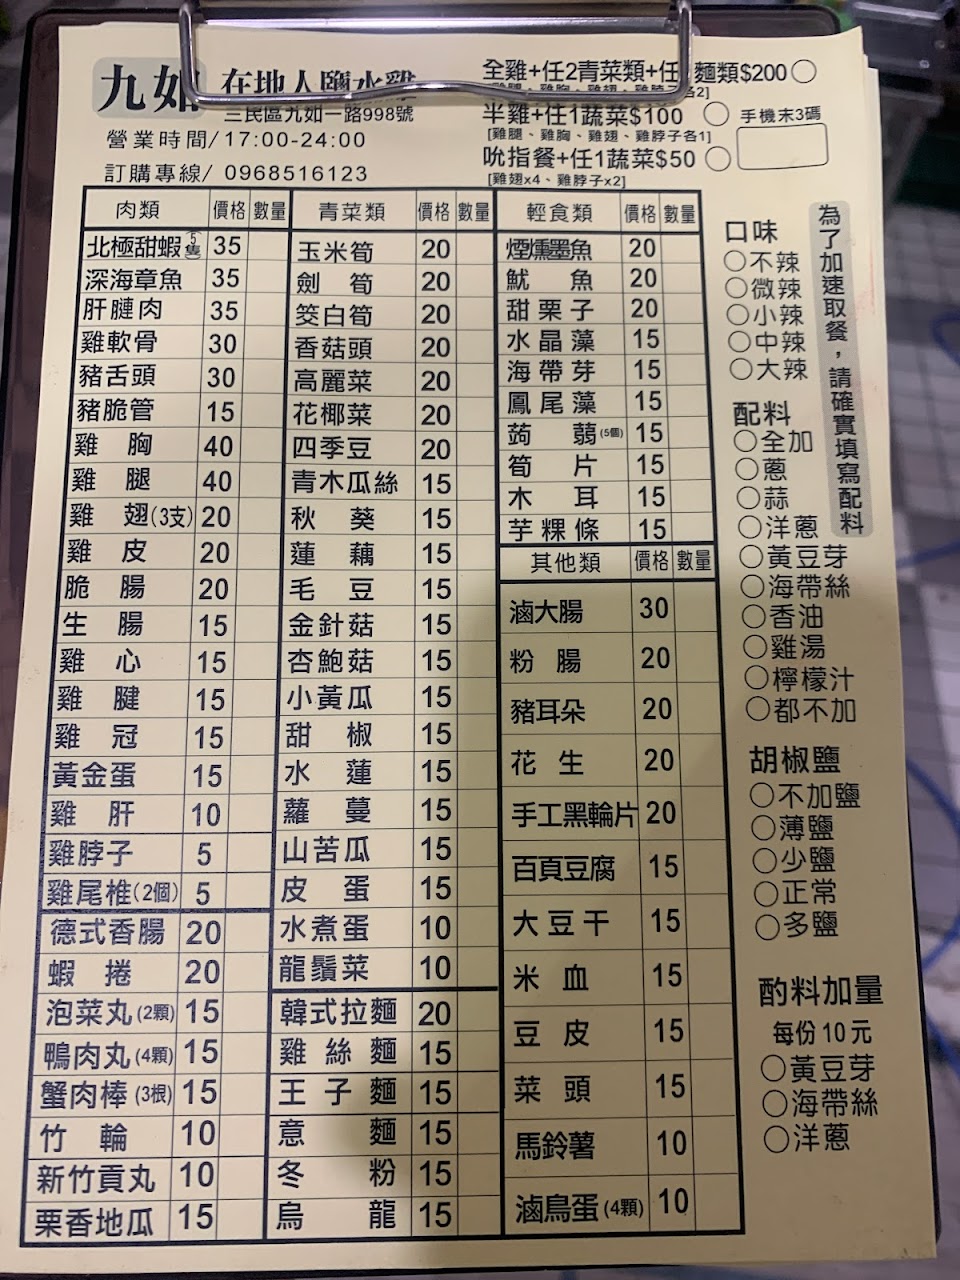 九如 在地人鹽水雞
三民區九如一路998號
營業時間/17:00-24:00
訂購專線/ 0968516123
全雞+任2青菜類+任 麵類$200○
半雞+任1蔬菜$100 ○
[雞腿、雞胸、雞翅、雞脖子各1]
吮指餐+任1蔬菜$50 ○
[雞翅x4、雞脖子x2]
手機末3碼
肉類 價格 數量
北極甜蝦(5隻) 35
深海章魚 35
肝膁肉 35
雞軟骨 30
豬舌頭 30
豬脆管 15
雞胸 40
雞腿 40
雞翅(3支) 20
雞皮 20
脆腸 20
生腸 15
雞心 15
雞腱 15
雞冠 15
黃金蛋 15
雞肝 10
雞脖子 5
雞尾椎(2個) 5
德式香腸 20
蝦捲 20
泡菜丸(2顆) 15
鴨肉丸(4顆) 15
蟹肉棒(3根) 15
竹輪 10
新竹貢丸 10
栗香地瓜 15
青菜類 價格 數量
玉米筍 20
劍筍 20
筊白筍 20
香菇頭 20
高麗菜 20
花椰菜 20
四季豆 20
青木瓜絲 15
秋葵 15
蓮藕 15
毛豆 15
金針菇 15
杏鮑菇 15
小黃瓜 15
甜椒 15
水蓮 15
蘿蔓 15
山苦瓜 15
皮蛋 15
水煮蛋 10
龍鬚菜 10
韓式拉麵 20
雞絲麵 15
王子麵 15
意麵 15
冬粉 15
烏龍 15
輕食類 價格 數量
煙燻墨魚 20
魷魚 20
甜栗子 20
水晶藻 15
海帶芽 15
鳳尾藻 15
蒟蒻(5個) 15
筍片 15
木耳 15
芋粿條 15
其他類 價格 數量
滷大腸 30
粉腸 20
豬耳朵 20
花生 20
手工黑輪片 20
百頁豆腐 15
大豆干 15
米血 15
豆皮 15
菜頭 15
馬鈴薯 10
滷鳥蛋(4顆) 10
口味
○不辣
○微辣
○小辣
○中辣
○大辣
配料
○全加
○蔥
○蒜
○洋蔥
○黃豆芽
○海帶絲
○香油
○雞湯
○檸檬汁
○都不加
胡椒鹽
○不加鹽
○薄鹽
○少鹽
○正常
○多鹽
酌料加量
每份10元
○黃豆芽
○海帶絲
○洋蔥
為了加速取餐，請確實填寫配料